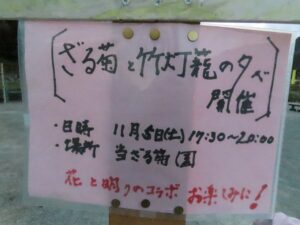 ざる菊と竹灯籠の夕べ
開催
・日時 11月5日(土) 17:30～20:00
・場所 当ざる菊園
花と明りのコラボ お楽しみに!